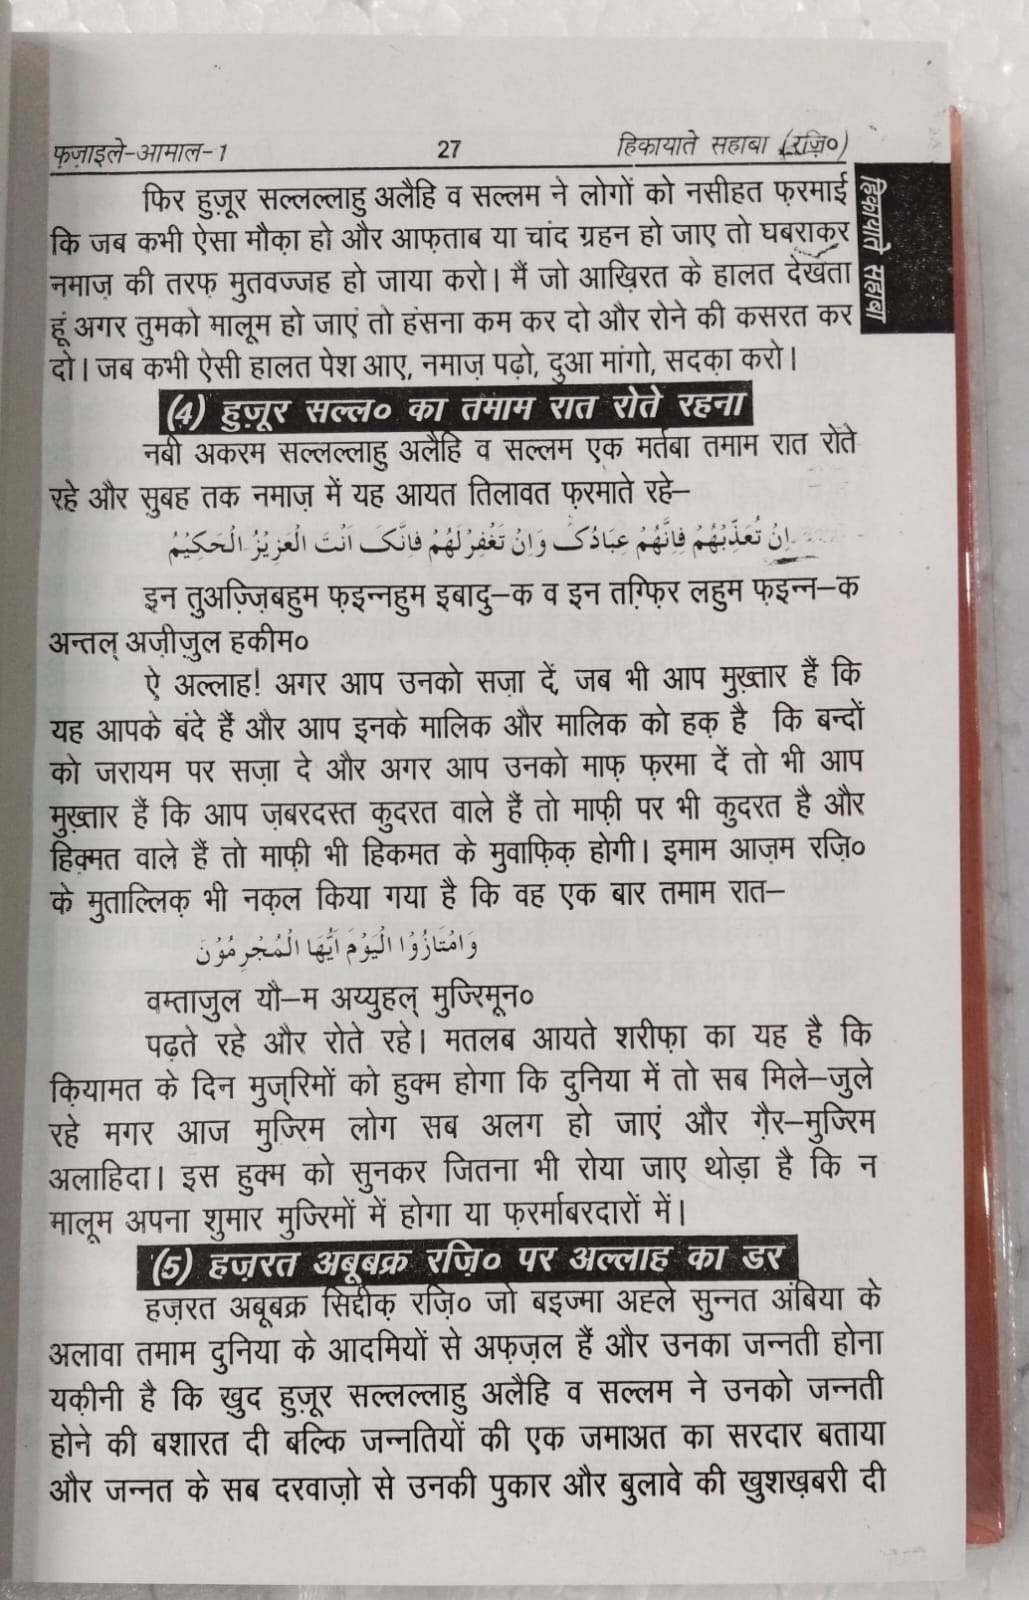 फ़ज़ाइले-आमाल-1 27 हिकायाते सहाबा (रज़ि०)
फिर हुज़ूर सल्लल्लाहु अलैहि व सल्लम ने लोगों को नसीहत फ़रमाई
कि जब कभी ऐसा मौक़ा हो और आफ़ताब या चांद ग्रहन हो जाए तो घबराकर
नमाज़ की तरफ़ मुतवज्जह हो जाया करो। मैं जो आख़िरत के हालत देखता
हूं अगर तुमको मालूम हो जाएं तो हंसना कम कर दो और रोने की कसरत कर
दो। जब कभी ऐसी हालत पेश आए, नमाज़ पढ़ो, दुआ मांगो, सदक़ा करो।
हिकायाते सहाबा
(4) हुज़ूर सल्ल० का तमाम रात रोते रहना
नबी अकरम सल्लल्लाहु अलैहि व सल्लम एक मर्तबा तमाम रात रोते
रहे और सुबह तक नमाज़ में यह आयत तिलावत फ़रमाते रहे–
اِنْ تُعَذِّبْهُمْ فَاِنَّهُمْ عِبَادُکَ وَاِنْ تَغْفِرْ لَهُمْ فَاِنَّکَ اَنْتَ الْعَزِیْزُ الْحَکِیْمُ
इन तुअज़्ज़िबहुम फ़इन्नहुम इबादु–क व इन तग़्फ़िर लहुम फ़इन्न–क
अन्तल् अज़ीज़ुल हकीम०
ऐ अल्लाह! अगर आप उनको सज़ा दें, जब भी आप मुख़्तार हैं कि
यह आपके बंदे हैं और आप इनके मालिक और मालिक को हक़ है कि बन्दों
को जरायम पर सज़ा दे और अगर आप उनको माफ़ फ़रमा दें तो भी आप
मुख़्तार हैं कि आप ज़बरदस्त कुदरत वाले हैं तो माफ़ी पर भी कुदरत है और
हिक़्मत वाले हैं तो माफ़ी भी हिकमत के मुवाफ़िक़ होगी। इमाम आज़म रज़ि०
के मुताल्लिक़ भी नक़ल किया गया है कि वह एक बार तमाम रात–
وَامْتَازُوا الْیَوْمَ اَیُّهَا الْمُجْرِمُوْنَ
वम्ताजुल यौ–म अय्युहल् मुज्रिमून०
पढ़ते रहे और रोते रहे। मतलब आयते शरीफ़ा का यह है कि
क़ियामत के दिन मुज्रिमों को हुक्म होगा कि दुनिया में तो सब मिले–जुले
रहे मगर आज मुज्रिम लोग सब अलग हो जाएं और ग़ैर–मुज्रिम
अलाहिदा। इस हुक्म को सुनकर जितना भी रोया जाए थोड़ा है कि न
मालूम अपना शुमार मुज्रिमों में होगा या फ़रर्माबरदारों में।
(5) हज़रत अबूबक्र रज़ि० पर अल्लाह का डर
हज़रत अबूबक्र सिद्दीक़ रज़ि० जो बइज्मा अह्ले सुन्नत अंबिया के
अलावा तमाम दुनिया के आदमियों से अफ़ज़ल हैं और उनका जन्नती होना
यक़ीनी है कि ख़ुद हुज़ूर सल्लल्लाहु अलैहि व सल्लम ने उनको जन्नती
होने की बशारत दी बल्कि जन्नतियों की एक जमाअत का सरदार बताया
और जन्नत के सब दरवाज़ो से उनकी पुकार और बुलावे की ख़ुशख़बरी दी